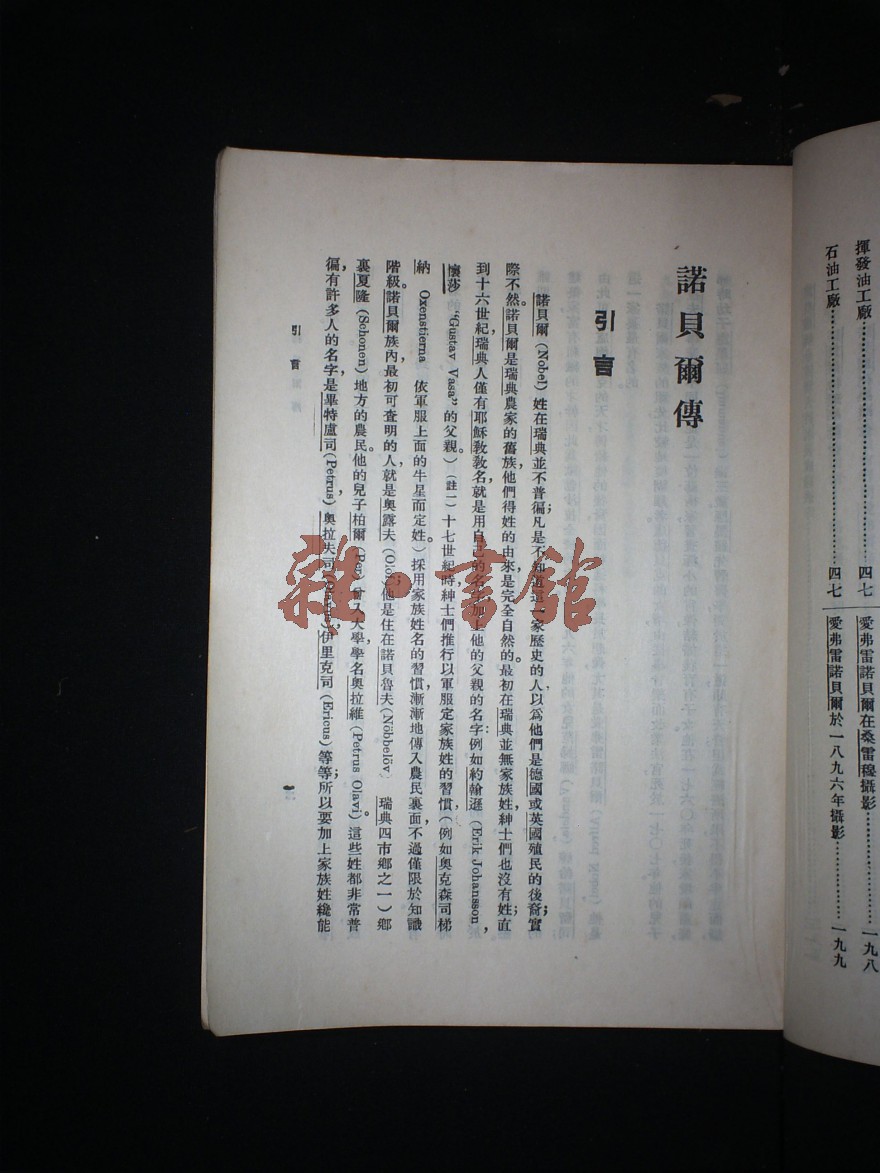 揮發油工廠……………………四七
石油工廠……………………四七
愛弗雷諾貝爾在桑雷穆攝影……………一九八
愛弗雷諾貝爾於一八九六年攝影…………一九九
諾貝爾傳
引言
諾貝爾(Nobel)姓在瑞典並不普徧凡是不知道這一家歷史的人以爲他們是德國或英國殖民的後裔;實
際不然。諾貝爾是瑞典農家的舊族他們得姓的由來是完全自然的。最初在瑞典並無家族姓紳士們也沒有姓;直
到十六世紀,瑞典人僅有耶穌敎敎名就是用自己的名字加上他的父親的名字:例如約翰遜(Erik Johansson,
懷莎 "Gustav Vasa"的父親。)(註一)十七世紀時紳士們推行以軍服定家族姓的習慣,(例如奧克森司梯
納 Oxenstierna 依軍服上面的牛星而定姓。)採用家族姓名的習慣,漸漸地傳入農民裏面,不過僅限於知識
階級。諾貝爾族內,最初可查明的人,就是奧露夫(Olof;)他是住在諾貝魯夫(Nöbbelöv) 瑞典四市鄉之一)鄉
裏夏隆(Schonen)地方的農民。他的兒子柏爾(Per)曾入大學,學名奧拉維(Petrus Olavi)。這些姓都非常普
徧,有許多人的名字,是畢特盧司(Petrus),奧拉夫司(),伊里克司(Ericus)等等;所以要加上家族姓纔能
引言
雜·書館